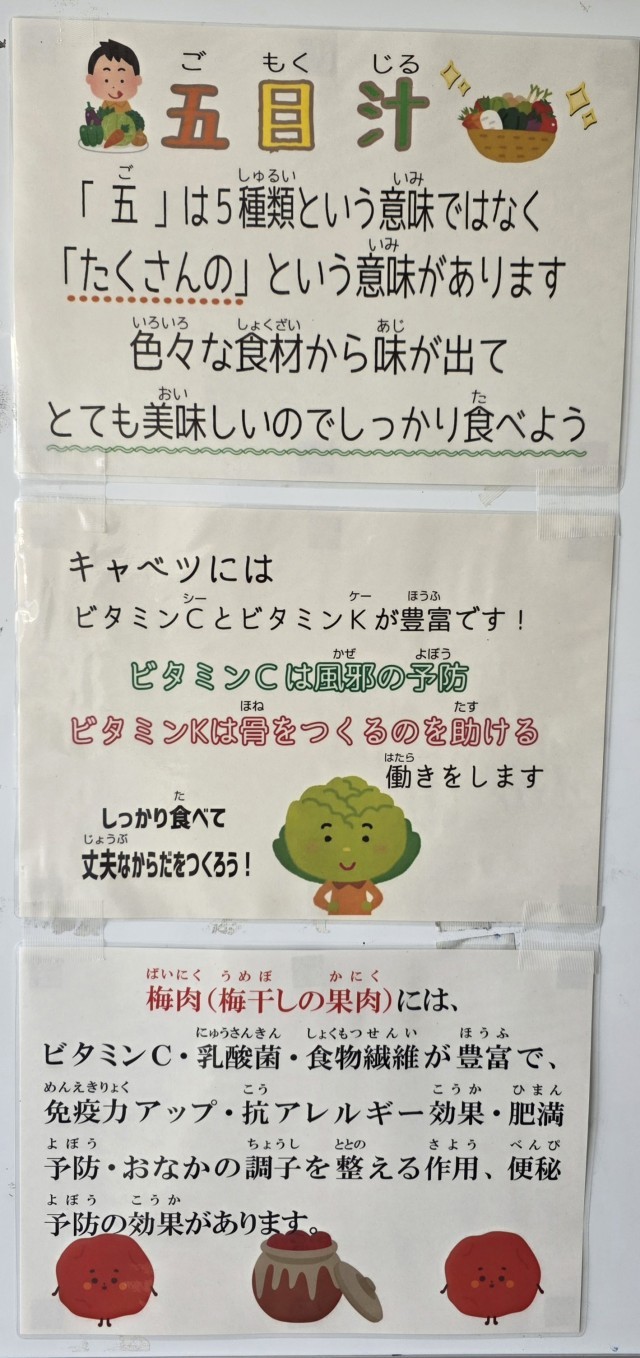 五目汁
ごもくじる
「五」は5種類という意味ではなく
ごしゅるいいみ
「たくさんの」という意味があります
いみ
色々な食材から味が出て
いろいろしょくざいあじ
とても美味しいのでしっかり食べよう
おいた
キャベツには
ビタミンCとビタミンKが豊富です！
シーケーほうふ
ビタミンCは風邪の予防
かぜよぼう
ビタミンKは骨をつくるのを助ける
ほねたす
働きをします
はたら
しっかり食べて
た
丈夫なからだをつくろう！
じょうぶ
梅肉（梅干しの果肉）には、
ばいにくうめぼかにく
ビタミンC・乳酸菌・食物繊維が豊富で、
にゅうさんきんしょくもつせんいほうふ
免疫力アップ・抗アレルギー効果・肥満
めんえきりょくこうこうかひまん
予防・おなかの調子を整える作用、便秘
よぼうちょうしととのさようべんぴ
予防の効果があります。
よぼうこうか